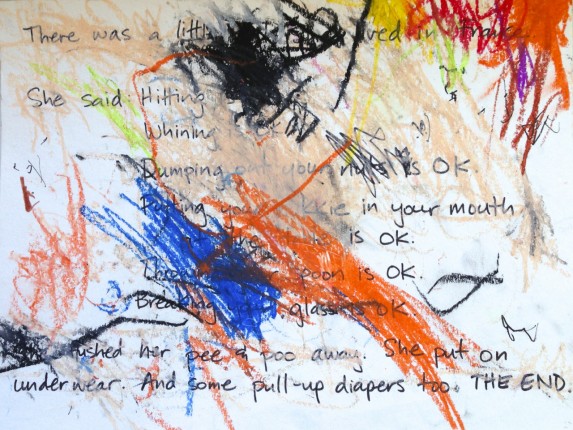 There was a little lived in France
She said: Hitting
Whining is OK.
Dumping out your nuts is OK.
Putting your in your mouth
is OK.
Throwing your spoon is OK.
Breaking glass is OK.
her pee & poo away. She put on
underwear. And some pull-up diapers too. THE END.